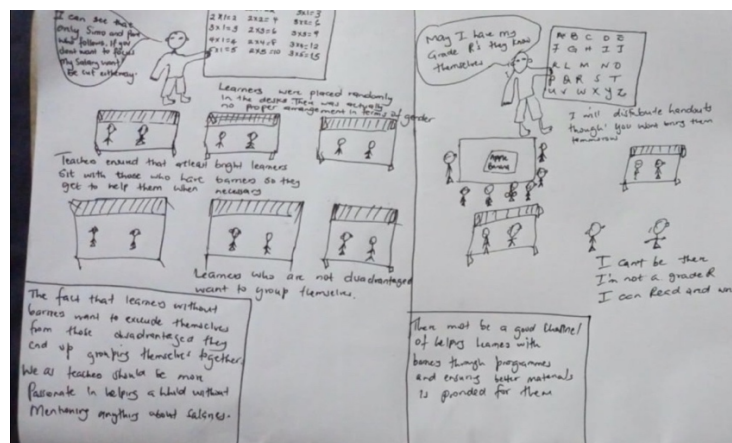 I can see that
only Simo and
who follows. If you
dont want to focus
My Salary wont
be cut anyway.
2x1=2 2x2=4
3x1=3 2x3=6 3x3=9
4x1=4 2x4=8 3x4=12
5x1=5 2x5=10 3x5=15
Learners were placed randomly
in the desks There was actually
no proper arrangement in terms of gender
Teacher ensured that atleast bright learners
Sit with those who have barriers so they
get to help them when necessary
Learners who are not disadvantaged
want to group themselves.
The fact that learners without
barriers want to exclude themselves
from those disadvantaged they
end up grouping themselves together.
We as teachers should be more
Passionate in helping a child without
Mentioning anything about salaries.
May I have my
Grade R's they know
themselves
A B C D E
F G H I J
K L M N O
P Q R S T
U V W X Y Z
I will distribute handouts
though you wont bring them
tomorrow
Apple
Banana
I cant be there
I'm not a grade R
I can Read and
There must be a good channel
of helping learners with
barriers through programmes
and ensuring better materials
is provided for them